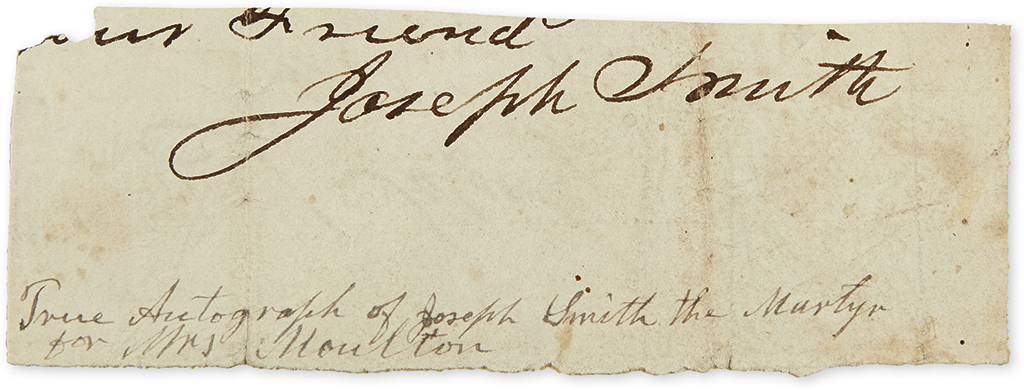 Friend
Joseph Smith
True Autograph of Joseph Smith the Martyr
for Mrs Moulton